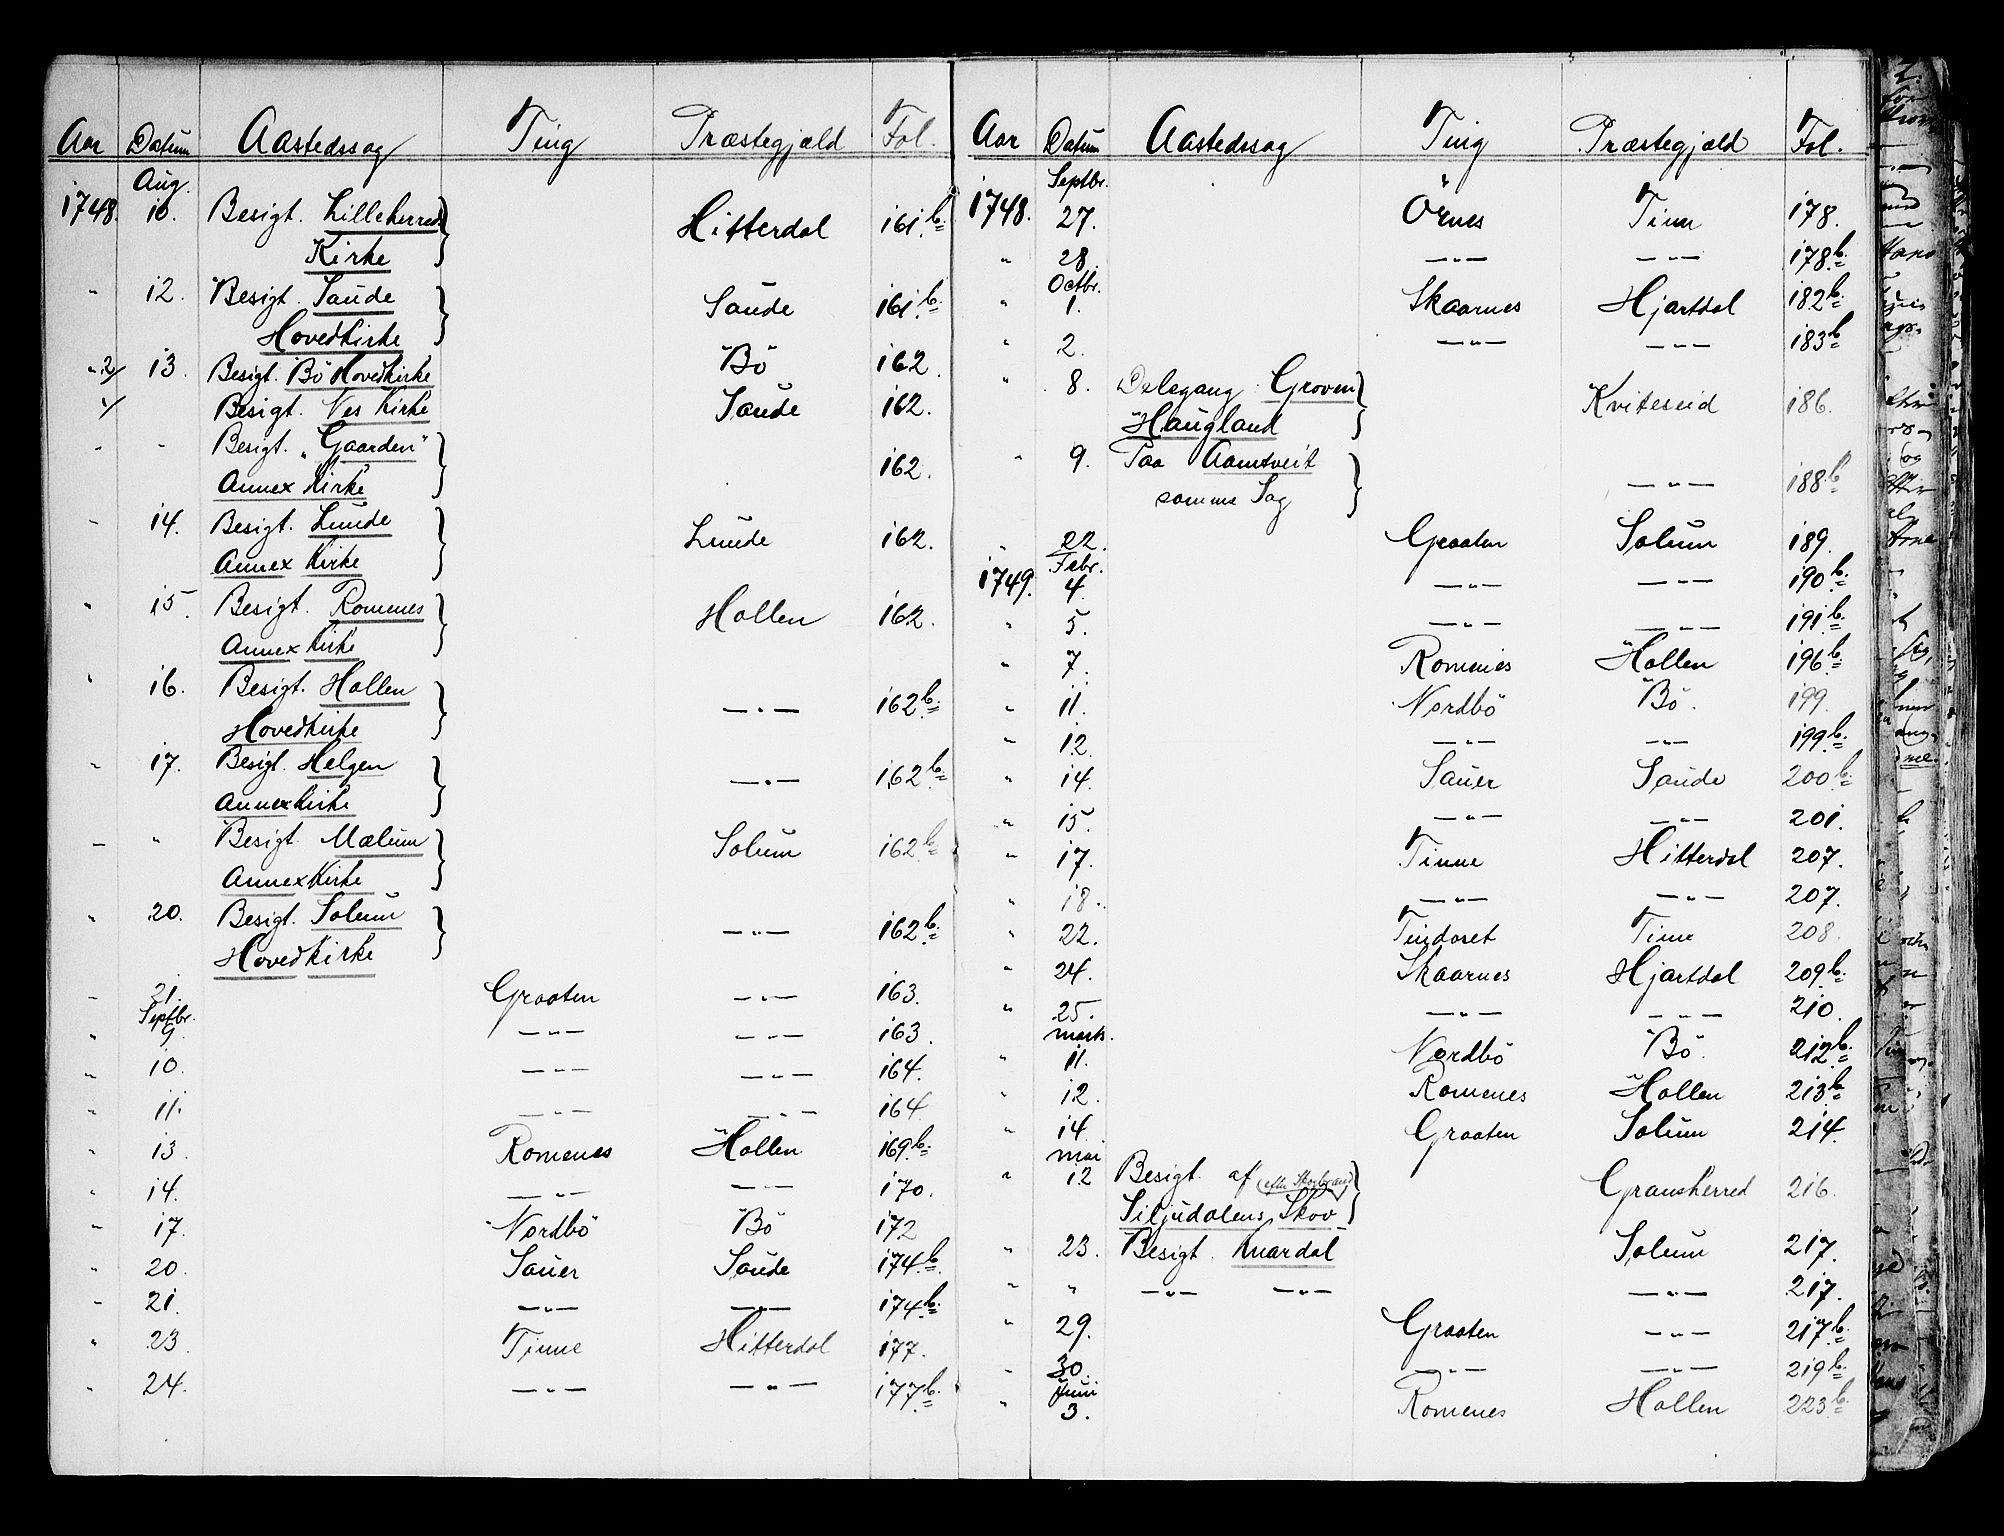 Aar Datum Aastedssag Ting Præstegjæld Fol.
Aug.
1748. 10. Besigt. Lilleherred Hitterdal 161.b.
Kirke
" 12. Besigt. Saude Saude 161.b.
Hovedkirke
" 13. Besigt. Bö Hovedkirke Bö 162.
Besigt. Nes Kirke Saude 162.
" " Besigt. „Gaarden“ 162.
Annex Kirke
" 14. Besigt. Lunde Lunde 162.
Annex Kirke
" 15. Besigt. Romenes Hollen 162.
Annex Kirke
" 16. Besigt. Hollen —"— 162.b.
Hovedkirke
" 17. Besigt. Helgen —"— 162.b.
Annexkirke
" " Besigt. Mælum Solum 162.b.
AnnexKirke
" 20. Besigt. Solum —"— 162.b.
Hovedkirke
" 21. Graaten —"— 163.
Septbr.
" 9. —"— —"— 163.
" 10. —"— —"— 164.
" 11. —"— —"— 164
" 13. Romenes Hollen 169.b.
" 14. —"— —"— 170.
" 17. Nordbö Bö 172
" 20. Sauer Saude 174.b.
" 21. —"— —"— 174.b.
" 23. Tinne Hitterdal 177.
" 24. —"— —"— 177.b.
Aar Datum Aastedssag Ting Præstegjæld Fol.
Septbr.
1748. 27. Örnes Tinn 178.
" 28. —"— —"— 178.b.
Octbr.
" 1. Skaarnes Hjartdal 182.b.
" 2. —"— —"— 183.b.
" 8. Delegang Groven Kviteseid 186.
Haugland
" 9. Paa Aamtveit —"— 188.b.
samme Sag
" 22. Graaten Solum 189.
Febr.
1749. 4. —"— —"— 190.b.
" 5. —"— —"— 191.b.
" 7. Romenes Hollen 196.b.
" 11. Nordbö Bö 199.
" 12. —"— —"— 199.b.
" 14. Sauer Saude 200.b.
" 15. —"— —"— 201.
" 17. Tinne Hitterdal 207.
" 18. —"— —"— 207.
" 22. Tindoset Tinn 208.
" 24. Skaarnes Hjartdal 209.b.
" 25. —"— —"— 210.
marts.
" 11. Nordbö Bö 212.b.
" 12. Romenes Hollen 213.b.
" 14. Graaten Solum 214.
mai
" 12 Besigt. af (efter Skovbrand) Gransherred 216.
Siljudalens Skov
" 23. Besigt. Mardal Solum 217.
" " —"— —"— —"— 217.
" 29. Graaten —"— 217.b.
" 30. —"— —"— 219.b.
Juni
" 3. Romenes Hollen 223.b.